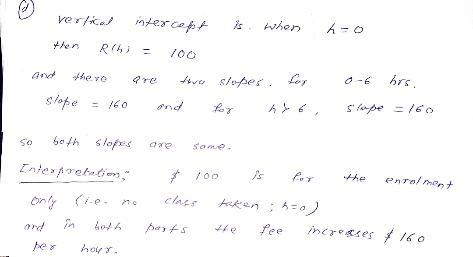 (d)
vertical intercept is. when h=0
then R(h) = 100
and there are two slopes. for 0-6 hrs.
slope = 160 and for h > 6, slope = 160
so both slopes are same.
Interpretation:- $ 100 is for the enrolment
only (i.e. no class taken ; h=0)
and in both parts the fee increases $ 160
per hour.